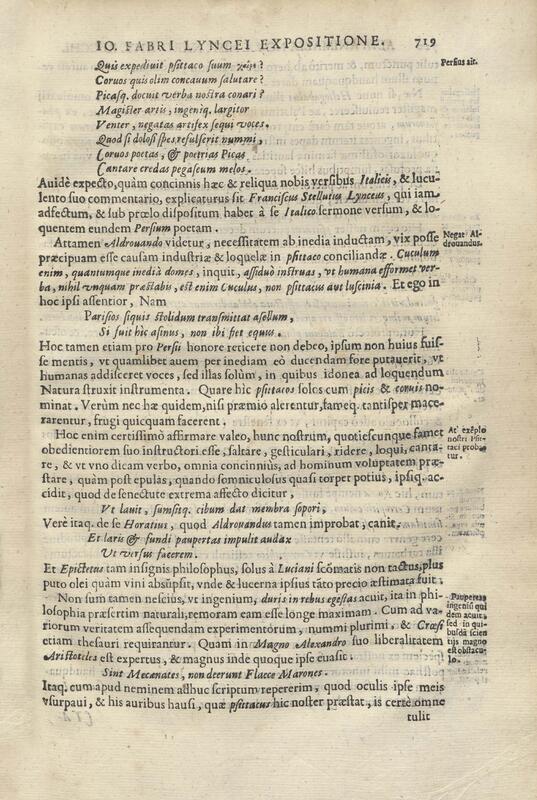 IO. FABRI LYNCEI EXPOSITIONE. 719
Quis expediuit psittaco suum χαῖρε?
Persius ait.
Coruos quis olim concauum salutare?
Picasq. docuit verba nostra conari?
Magister artis, ingeniq. largitor
Venter, negatas artifex sequi voces.
Quod si dolosi spes refulserit nummi,
Coruos poetas, & poetrias Picas
Cantare credas pegaseum melos.
Auidè expecto, quàm concinnis hæc & reliqua nobis versibus Italicis, & lucu-
lento suo commentario, explicaturus sit Franciscus Stellutus Lynceus, qui iam
adfectum, & sub prælo dispositum habet à se Italico sermone versum, & lo-
quentem eundem Persium poetam.
Attamen Aldrouando videtur, necessitatem ab inedia inductam, vix posse
Negat Al-
drouandus.
præcipuam esse causam industriæ & loquelæ in psittaco conciliandæ. Cuculum
enim, quantumque inediâ domes, inquit, assiduò instruas, vt humana efformet ver-
ba, nihil vnquam præstabis, est enim Cuculus, non psittacus aut luscinia. Et ego in
hoc ipsi assentior, Nam
Parisios siquis stolidum transmittat asellum,
Si fuit hic asinus, non ibi fiet equus.
Hoc tamen etiam pro Persii honore reticere non debeo, ipsum non huius fuis-
se mentis, vt quamlibet auem per inediam eò ducendam fore putauerit, vt
humanas addisceret voces, sed illas solùm, in quibus idonea ad loquendum
Natura struxit instrumenta. Quare hic psittacos solos cum picis & coruis no-
minat. Verùm nec hæ quidem, nisi præmio alerentur, fameq. tantisper mace-
rarentur, frugi quicquam facerent.
Hoc enim certissimò affirmare valeo, hunc nostrum, quotiescunque famet
At exẽplo
nostri Psit-
taci proba-
tur.
obedientiorem suo instructori esse, saltare, gesticulari, ridere, loqui, canta-
re, & vt vno dicam verbo, omnia concinniùs, ad hominum voluptatem præ-
stare, quàm post epulas, quando somniculosus quasi torpet potius, ipsiq. ac-
cidit, quod de senectute extrema affecto dicitur,
Vt lauit, sumsitq. cibum dat membra sopori,
Verè itaq. de se Horatius, quod Aldrouandus tamen improbat, canit,
Et laris & fundi paupertas impulit audax
Vt versus facerem.
Et Epictetus tam insignis philosophus, solus à Luciani scōmatis non tactus, plus
puto olei quàm vini absūpsit, vnde & lucerna ipsius tāto precio æstimata fuit.
Non sum tamen nescius, vt ingenium, duris in rebus egestas acuit, ita in phi-
Paupertas
ingeniū qui
dem acuit,
sed in qui-
busdā scien
tijs magno
est obstacu-
lo.
losophia præsertim naturali, remoram eam esse longe maximam. Cum ad va-
riorum veritatem assequendam experimentorum, nummi plurimi, & Cræsi
etiam thesauri requirantur. Quam in Magno Alexandro suo liberalitatem
Aristotiles est expertus, & magnus inde quoque ipse euasit.
Sint Mecænates, non deerunt Flacce Marones.
Itaq. cum apud neminem adhuc scriptum repererim, quod oculis ipse meis
vsurpaui, & his auribus hausi, quæ psittacus hic noster præstat, is certè omne
tulit